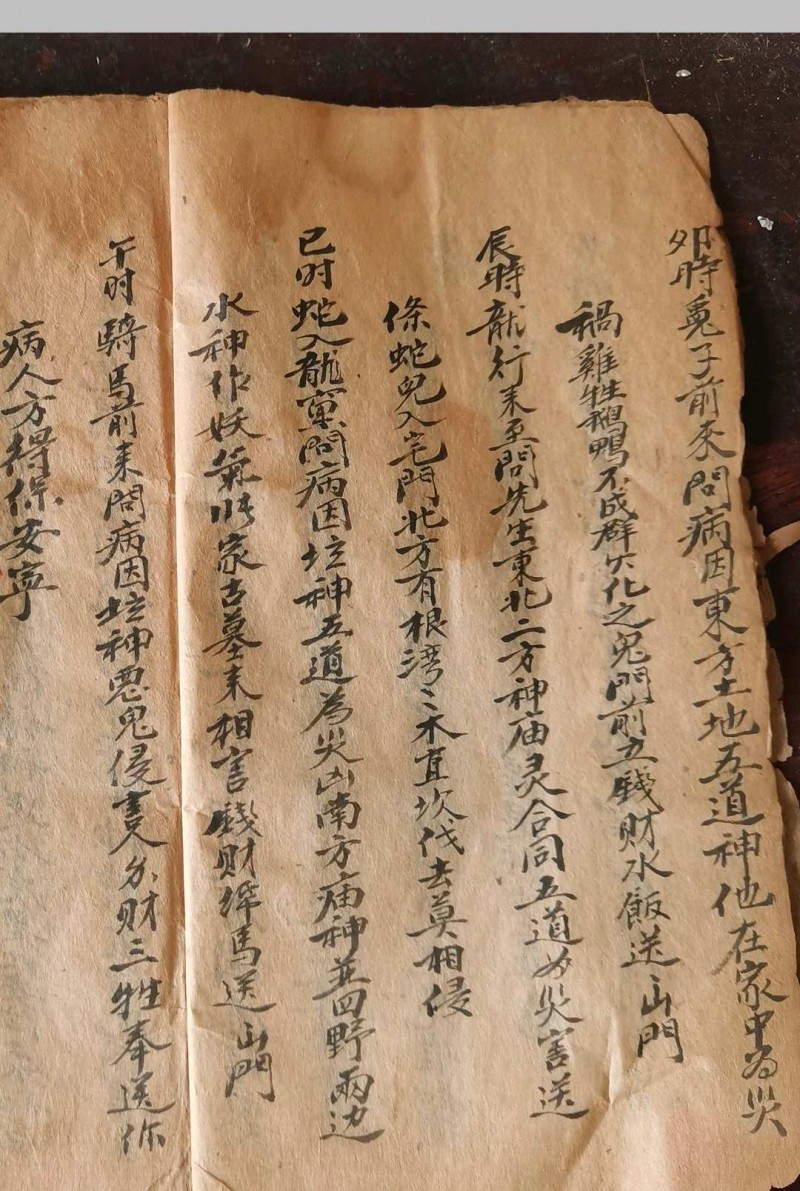 卯時兎子前来問病因東方土地五道神他在家中為災
禍雞牲鵝鴨不成群六化之鬼門前立錢財水飯送出門
辰時龍行来至問先生東北二方神庙灵合同五道為災害送
條蛇兒入宅門北方有根湾〻木直坎伐去莫相侵
巳时蛇入龍窠問病因坛神五道為災凶南方庙神並四野兩边
水神作妖氣 家古墓来相害錢財 馬送出門
午时騎馬前来問病因坛神惡鬼侵害人分财三牲奉送你
病人方得保安寧